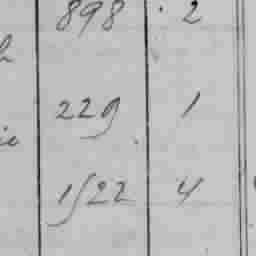 898 2
229 1
1522 4